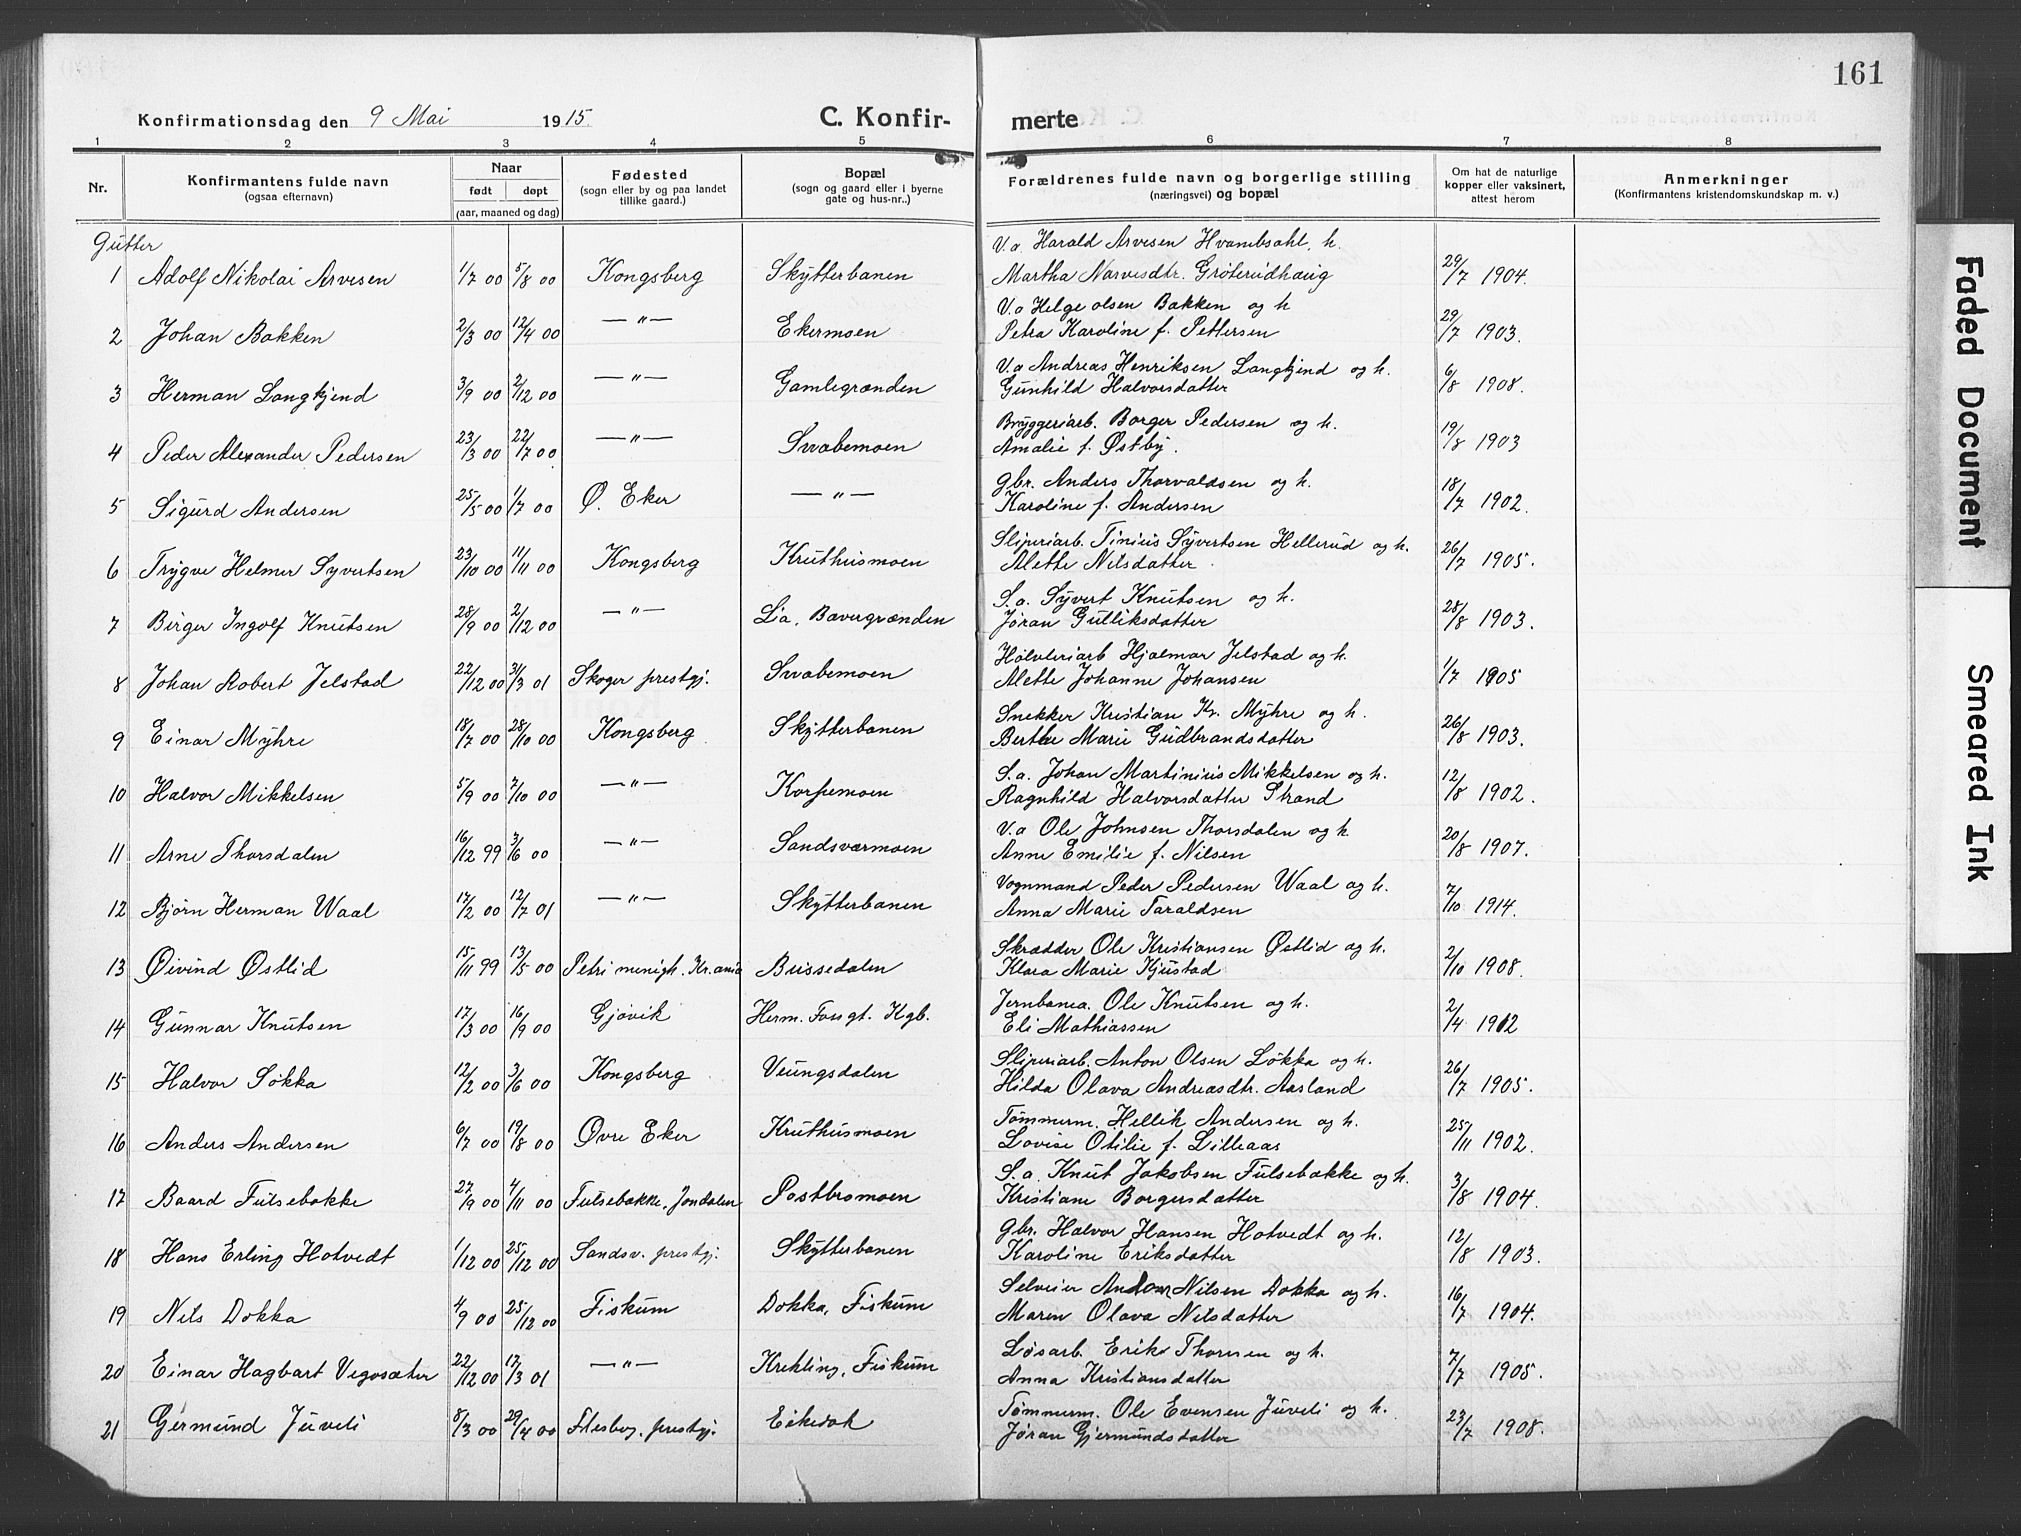 161
Konfirmationsdag den 9 Mai 1915. C. Konfir- merte
1 2 3 4 5 6 7 8
Nr.
Konfirmantens fulde navn
(ogsaa efternavn)
Naar
født døpt
(aar, maaned og dag)
Fødested
(sogn eller by og paa landet
tillike gaard.)
Bopæl
(sogn og gaard eller i byerne
gate og hus-nr.)
Forældrenes fulde navn og borgerlige stilling
(næringsvei) og bopæl
Om hat de naturlige
kopper eller vaksinert,
attest herom
Anmerkninger
(Konfirmantens kristendomskundskap m. v.)
Gutter
V.a. Harald Arvesen Hvambsahl, h.
1 Adolf Nikolai Arvesen 1/7 00 5/8 00 Kongsberg Skytterbanen Martha Narvesdtr. Grøterudhaug 29/7 1904.
V.a Helge Olsen Bakken og h
2 Johan Bakken 2/3 00 12/4 00 —"— Ekermoen Petra Karoline f. Pettersen 29/7 1903.
V.a Andreas Henriksen Langkjend og h.
3 Herman Langkjend 3/9 00 2/12 00 —"— Gamlegrænden Gunhild Halvorsdatter 6/8 1908.
Bryggeriarb. Borger Pedersen og h.
4 Peder Alexander Pedersen 23/3 00 22/7 00 —"— Svabemoen Amalie f. Østby. 19/8 1903
gbr. Anders Thorvaldsen og h.
5 Sigurd Andersen 25/5 00 1/7 00 Ø. Eker —"— Karoline f. Andersen 18/7 1902.
Sliperiarb. Tinius Syvertsen Hellerud og h.
6 Trygve Helmer Syvertsen 23/10 00 11/11 00 Kongsberg Kruthusmoen Alette Nilsdatter 26/7 1905.
S.a. Syvert Knutsen og h.
7 Birger Ingolf Knutsen 28/9 00 2/12 00 —"— Lia, Bævergrænden Jøran Gulliksdatter 28/8 1903.
Høvleriarb Hjalmar Jelstad og h.
8 Johan Robert Jelstad 22/12 00 31/3 01 Skoger prestgj. Svabemoen Alette Johanne Johansen 1/7 1905
Snekker Kristian Kr. Myhre og h.
9 Einar Myhre 18/7 00 28/10 00 Kongsberg Skytterbanen Berthe Marie Gudbrandsdatter 26/8 1903.
S.a. Johan Martinius Mikkelsen og h.
10 Halvor Mikkelsen 5/9 00 7/10 00 —"— Korpemoen Ragnhild Halvorsdatter Strand 12/8 1902.
V.a Ole Johnsen Thorsdalen og h.
11 Arne Thorsdalen 16/12 99 3/6 00 —"— Sandsværmoen Anne Emilie f. Nilsen 20/8 1907.
Vognmand Peder Pedersen Waal og h.
12 Bjørn Herman Waal 17/2 00 12/7 01 —"— Skytterbanen Anna Marie Taraldsen 7/10 1914.
Skrædder Ole Kristiansen Østlid og h.
13 Øivind Østlid 15/11 99 13/5 00 Petri menigh. Kr.ania Bussedalen Klara Marie Kjustad 2/10 1908.
Jernbanea. Ole Knutsen og h.
14 Gunnar Knutsen 17/3 00 16/9 00 Gjøvik Herm. Fosgt. Kgb. Eli Mathiassen 2/4 1912
Sliperiarb. Anton Olsen Løkka og h.
15 Halvor Løkka 12/2 00 3/6 00 Kongsberg Veungsdalen Hilda Olava Andreasdtr. Aasland 26/7 1905.
Tømmerm. Hellik Andersen og h.
16 Anders Andersen 6/7 00 19/8 00 Øvre Eker Kruthusmoen Lovise Otilie f. Lilleaas 25/11 1902.
S.a. Knut Jakobsen Fulsebakke og h.
17 Baard Fulsebakke 27/9 00 4/11 00 Fulsebakke, Jondalen Postbromoen Kristiane Borgersdatter 3/8 1904.
gbr. Halvor Hansen Hotvedt og h.
18 Hans Erling Hotvedt 1/12 00 25/12 00 Sandsv. prestgj. Skytterbanen Karoline Eriksdatter 12/8 1903.
Selveier Andom Nilsen Dokka og h.
19 Nils Dokka 4/9 00 25/12 00 Fiskum Dokka, Fiskum Maren Olava Nilsdatter 16/7 1904.
Løsarb. Erik Thoresen og h.
20 Einar Hagbart Vegosæter 22/12 00 17/3 01 —"— Krekling, Fiskum Anna Kristiansdatter 7/7 1905.
Tømmerm. Ole Evensen Juveli og h.
21 Germund Juveli 8/3 00 29/4 00 Flesberg, prestgj. Eikedok Jøran Gjermundsdatter 23/7 1908.
Faded Document
Smeared Ink